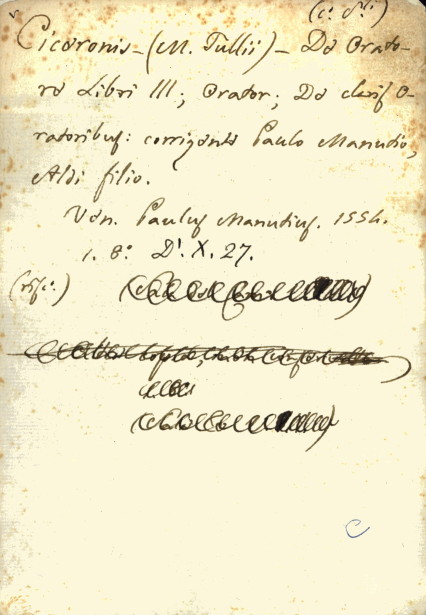 Ciceronis - (M. Tullii) - De Orato-
re Libri III; Orator; De claris O-
ratoribus: corrigente Paulo Manutio,
Aldi filio.
Ven. Paulus Manutius. 1554.
1. 8º D¹. X. 27.
C